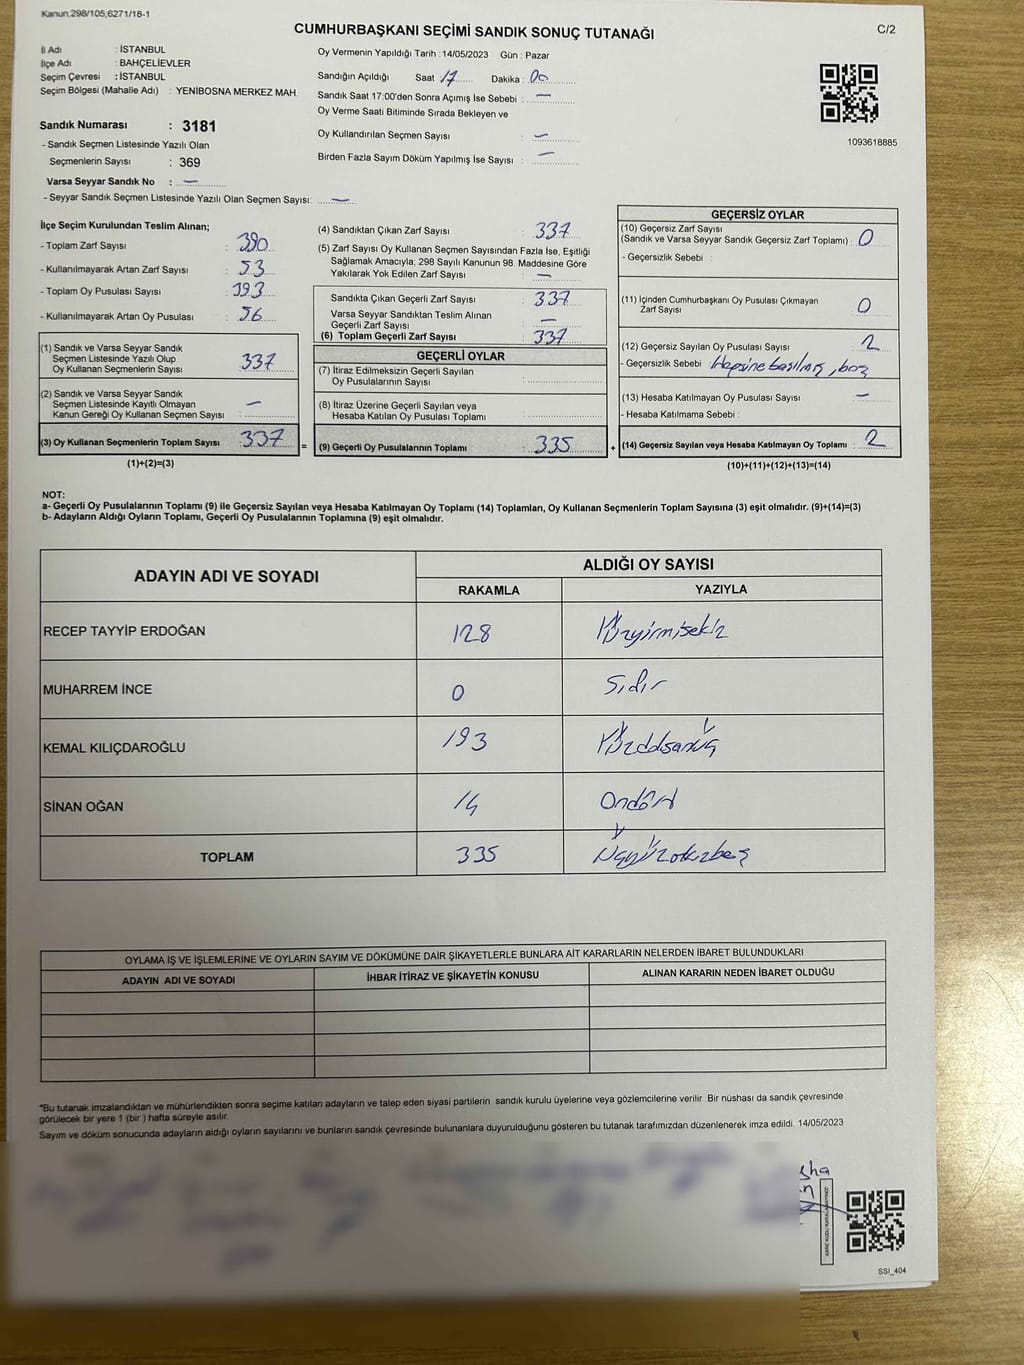 Kanun:298/105;6271/18-1
CUMHURBAŞKANI SEÇİMİ SANDIK SONUÇ TUTANAĞI
C/2
İl Adı : İSTANBUL
İlçe Adı : BAHÇELİEVLER
Seçim Çevresi : İSTANBUL
Seçim Bölgesi (Mahalle Adı) : YENİBOSNA MERKEZ MAH.
Sandık Numarası : 3181
- Sandık Seçmen Listesinde Yazılı Olan
Seçmenlerin Sayısı : 369
Varsa Seyyar Sandık No : —
- Seyyar Sandık Seçmen Listesinde Yazılı Olan Seçmen Sayısı: —
Oy Vermenin Yapıldığı Tarih : 14/05/2023 Gün : Pazar
Sandığın Açıldığı Saat 17 Dakika : 00
Sandık Saat 17:00'den Sonra Açımış İse Sebebi : —
Oy Verme Saati Bitiminde Sırada Bekleyen ve
Oy Kullandırılan Seçmen Sayısı : —
Birden Fazla Sayım Döküm Yapılmış İse Sayısı : —
1093618885
İlçe Seçim Kurulundan Teslim Alınan;
- Toplam Zarf Sayısı : 390
- Kullanılmayarak Artan Zarf Sayısı : 53
- Toplam Oy Pusulası Sayısı : 393
- Kullanılmayarak Artan Oy Pusulası : 56
(1) Sandık ve Varsa Seyyar Sandık
Seçmen Listesinde Yazılı Olup
Oy Kullanan Seçmenlerin Sayısı : 337
(2) Sandık ve Varsa Seyyar Sandık
Seçmen Listesinde Kayıtlı Olmayan
Kanun Gereği Oy Kullanan Seçmen Sayısı : —
(3) Oy Kullanan Seçmenlerin Toplam Sayısı : 337
(1)+(2)=(3)
=
(4) Sandıktan Çıkan Zarf Sayısı : 337
(5) Zarf Sayısı Oy Kullanan Seçmen Sayısından Fazla İse, Eşitliği
Sağlamak Amacıyla; 298 Sayılı Kanunun 98. Maddesine Göre
Yakılarak Yok Edilen Zarf Sayısı : —
Sandıkta Çıkan Geçerli Zarf Sayısı : 337
Varsa Seyyar Sandıktan Teslim Alınan
Geçerli Zarf Sayısı : —
(6) Toplam Geçerli Zarf Sayısı : 337
GEÇERLİ OYLAR
(7) İtiraz Edilmeksizin Geçerli Sayılan
Oy Pusulalarının Sayısı :
(8) İtiraz Üzerine Geçerli Sayılan veya
Hesaba Katılan Oy Pusulası Toplamı :
(9) Geçerli Oy Pusulalarının Toplamı : 335
+
GEÇERSİZ OYLAR
(10) Geçersiz Zarf Sayısı
(Sandık ve Varsa Seyyar Sandık Geçersiz Zarf Toplamı) : 0
- Geçersizlik Sebebi :
(11) İçinden Cumhurbaşkanı Oy Pusulası Çıkmayan
Zarf Sayısı : 0
(12) Geçersiz Sayılan Oy Pusulası Sayısı : 2
- Geçersizlik Sebebi : Hepsine basılmış, boş
(13) Hesaba Katılmayan Oy Pusulası Sayısı : —
- Hesaba Katılmama Sebebi :
(14) Geçersiz Sayılan veya Hesaba Katılmayan Oy Toplamı : 2
(10)+(11)+(12)+(13)=(14)
NOT:
a- Geçerli Oy Pusulalarının Toplamı (9) ile Geçersiz Sayılan veya Hesaba Katılmayan Oy Toplamı (14) Toplamları, Oy Kullanan Seçmenlerin Toplam Sayısına (3) eşit olmalıdır. (9)+(14)=(3)
b- Adayların Aldığı Oyların Toplamı, Geçerli Oy Pusulalarının Toplamına (9) eşit olmalıdır.
ADAYIN ADI VE SOYADI ALDIĞI OY SAYISI
RAKAMLA YAZIYLA
RECEP TAYYİP ERDOĞAN 128 Yüzyirmisekiz
MUHARREM İNCE 0 Sıfır
KEMAL KILIÇDAROĞLU 193 Yüzdoksanüç
SİNAN OĞAN 14 Ondört
TOPLAM 335 Üçyüzotuzbeş
OYLAMA İŞ VE İŞLEMLERİNE VE OYLARIN SAYIM VE DÖKÜMÜNE DAİR ŞİKAYETLERLE BUNLARA AİT KARARLARIN NELERDEN İBARET BULUNDUKLARI
ADAYIN ADI VE SOYADI İHBAR İTİRAZ VE ŞİKAYETİN KONUSU ALINAN KARARIN NEDEN İBARET OLDUĞU
*Bu tutanak imzalandıktan ve mühürlendikten sonra seçime katılan adayların ve talep eden siyasi partilerin sandık kurulu üyelerine veya gözlemcilerine verilir. Bir nüshası da sandık çevresinde
görülecek bir yere 1 (bir ) hafta süreyle asılır.
Sayım ve döküm sonucunda adayların aldığı oyların sayılarını ve bunların sandık çevresinde bulunanlara duyurulduğunu gösteren bu tutanak tarafımızdan düzenlenerek imza edildi. 14/05/2023
SSI_404